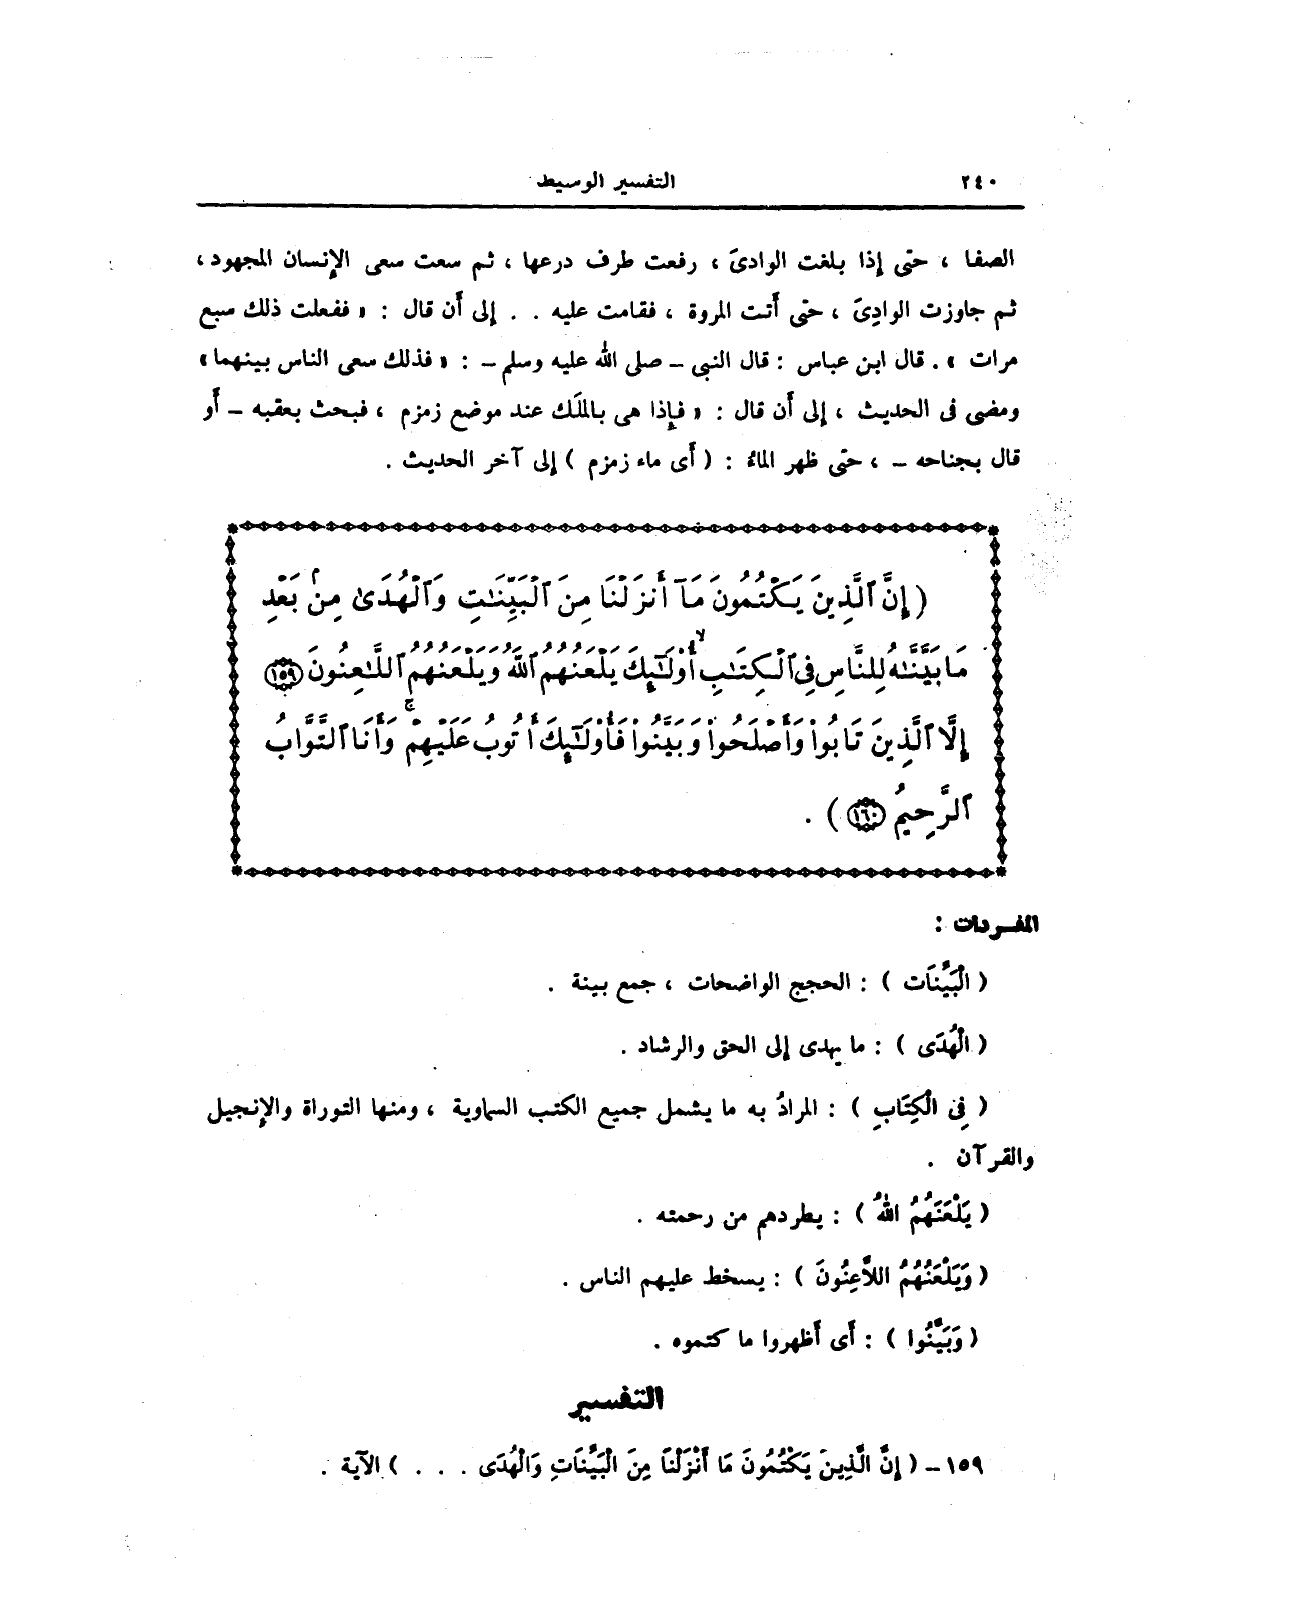 ٢٤٠
التفسير الوسيط
الصفا ، حتى إذا بلغت الوادىَ ، رفعت طرف درعها ، ثم سعت سعى الإنسان المجهود ،
ثم جاوزت الوادِىَ ، حتى أَتت المروة ، فقامت عليه . . إلى أَن قال : « ففعلت ذلك سبع
مرات » . قال ابن عباس : قال النبى – صلى الله عليه وسلم – : « فذلك سعى الناس بينهما »
ومضى فى الحديث ، إلى أَن قال : « فإذا هى بالملَك عند موضع زمزم ، فبحث بعقبه – أَو
قال بجناحه – ، حتى ظهر الماءُ : ( أَى ماء زمزم ) إلى آخر الحديث .
( إِنَّ ٱلَّذِينَ يَكْتُمُونَ مَآ أَنزَلْنَا مِنَ ٱلْبَيِّنَـٰتِ وَٱلْهُدَىٰ مِنۢ بَعْدِ
مَا بَيَّنَّـٰهُ لِلنَّاسِ فِى ٱلْكِتَـٰبِ ۙ أُوْلَـٰٓئِكَ يَلْعَنُهُمُ ٱللَّهُ وَيَلْعَنُهُمُ ٱللَّـٰعِنُونَ ١٥٩
إِلَّا ٱلَّذِينَ تَابُوا۟ وَأَصْلَحُوا۟ وَبَيَّنُوا۟ فَأُوْلَـٰٓئِكَ أَتُوبُ عَلَيْهِمْ ۚ وَأَنَا ٱلتَّوَّابُ
ٱلرَّحِيمُ ١٦٠ ) .
المفردات :
( الْبَيِّنَات ) : الحجج الواضحات ، جمع بينة .
( الْهُدَى ) : ما يهدى إلى الحق والرشاد .
( فِى الْكِتَابِ ) : المرادُ به ما يشمل جميع الكتب السماوية ، ومنها التوراة والإنجيل
والقرآن .
( يَلْعَنُهُمُ اللهُ ) : يطردهم من رحمته .
( وَيَلْعَنُهُمُ اللاَّعِنُونَ ) : يسخط عليهم الناس .
( وَبَيَّنُوا ) : أَى أَظهروا ما كتموه .
التفسير
١٥٩ – ( إِنَّ الَّذِينَ يَكْتُمُونَ مَا أَنْزَلْنَا مِنَ الْبَيِّنَاتِ وَالْهُدَى . . . ) الآية .